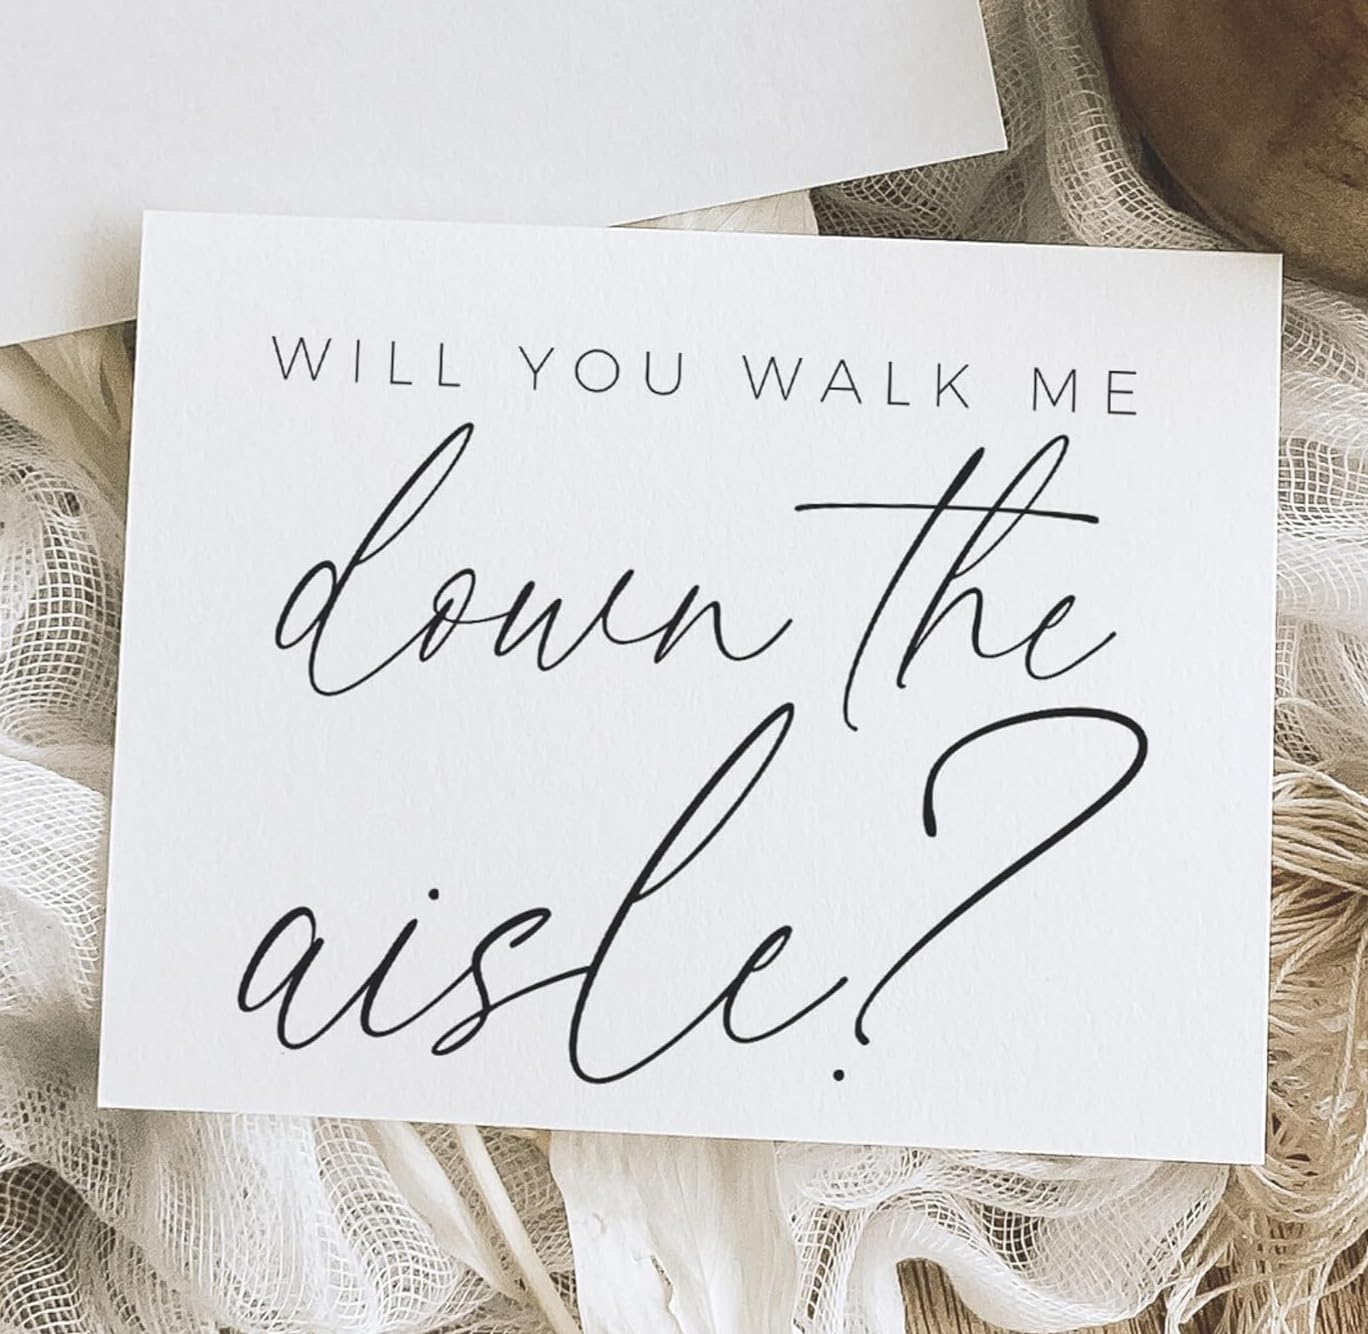 WILL YOU WALK ME
down the
aisle?